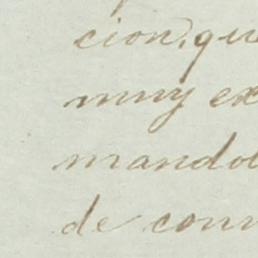 cion, qu
muy ex
mando
de con